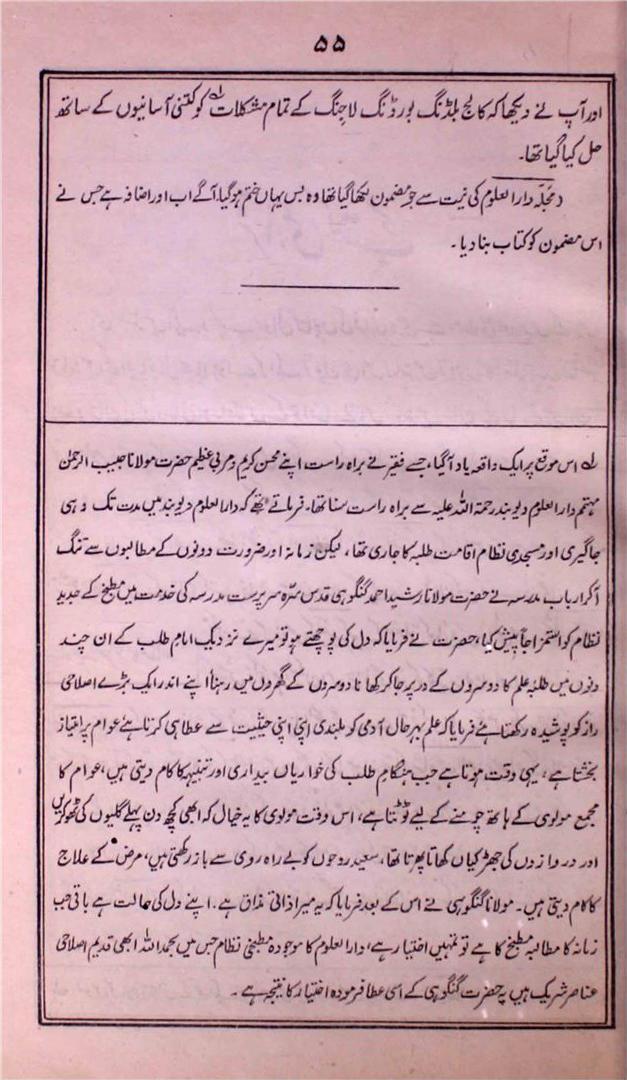 ۵۵
اور آپ نے دیکھا کہ کالج بلڈنگ بورڈنگ لاجنگ کے تمام مشکلات لہ کو کتنی آسانیوں کے ساتھ
حل کیا گیا تھا۔
(مجلہ دارالعلوم کی نیت سے جو مضمون لکھا گیا تھا وہ بس یہاں ختم ہو گیا، آگے اب اور اضافہ ہے جس نے
اس مضمون کو کتاب بنا دیا۔
لہ اس موقع پر ایک واقعہ یاد آگیا، جسے فقیر نے براہ راست اپنے محسن کریم و مربی عظیم حضرت مولانا حبیب الرحمٰن
مہتمم دارالعلوم دیوبند رحمۃ اللہ علیہ سے براہ راست سنا تھا۔ فرماتے تھے کہ دارالعلوم دیوبند میں مدت تک وہی
جاگیری اور مسجدی نظام اقامت طلبہ کا جاری تھا، لیکن زمانہ اور ضرورت دونوں کے مطالبوں سے تنگ
آکر ارباب مدرسہ نے حضرت مولانا رشید احمد گنگوہی قدس سرہ سرپرست مدرسہ کی خدمت میں مطبخ کے جدید
نظام کو استمزاجاً پیش کیا، حضرت نے فرمایا کہ دل کی پوچھتے ہو تو میرے نزدیک ایام طلب کے ان چند
دنوں میں طلبۂ علم کا دوسروں کے در پر جا کر کھانا دوسروں کے گھروں میں رہنا اپنے اندر ایک بڑے اصلاحی
راز کو پوشیدہ رکھتا ہے فرمایا کہ علم بہرحال آدمی کو بلندی اپنی اپنی حیثیت سے عطا ہی کرتا ہے عوام پر امتیاز
بخشتا ہے، یہی وقت ہوتا ہے جب ہنگام طلب کی خواریاں بیداری اور تنبیہ کا کام دیتی ہیں، عوام کا
مجمع مولوی کے ہاتھ چومنے کے لیے ٹوٹتا ہے، اس وقت مولوی کا یہ خیال کہ ابھی کچھ دن پہلے گلیوں کی ٹھوکریں
اور دروازوں کی جھڑکیاں کھاتا پھرتا تھا، سعید روحوں کو بے راہ روی سے باز رکھتی ہیں، مرض کے علاج
کا کام دیتی ہیں۔ مولانا گنگوہی نے اس کے بعد فرمایا کہ یہ میرا ذاتی مذاق ہے۔ اپنے دل کی حالت ہے باقی جب
زمانہ کا مطالبہ مطبخ کا ہے تو تمہیں اختیار ہے، دارالعلوم کا موجودہ مطبخی نظام جس میں بحمد اللہ ابھی قدیم اصلاحی
عناصر شریک ہیں یہ حضرت گنگوہی کے اسی عطا فرمودہ اختیار کا نتیجہ ہے۔